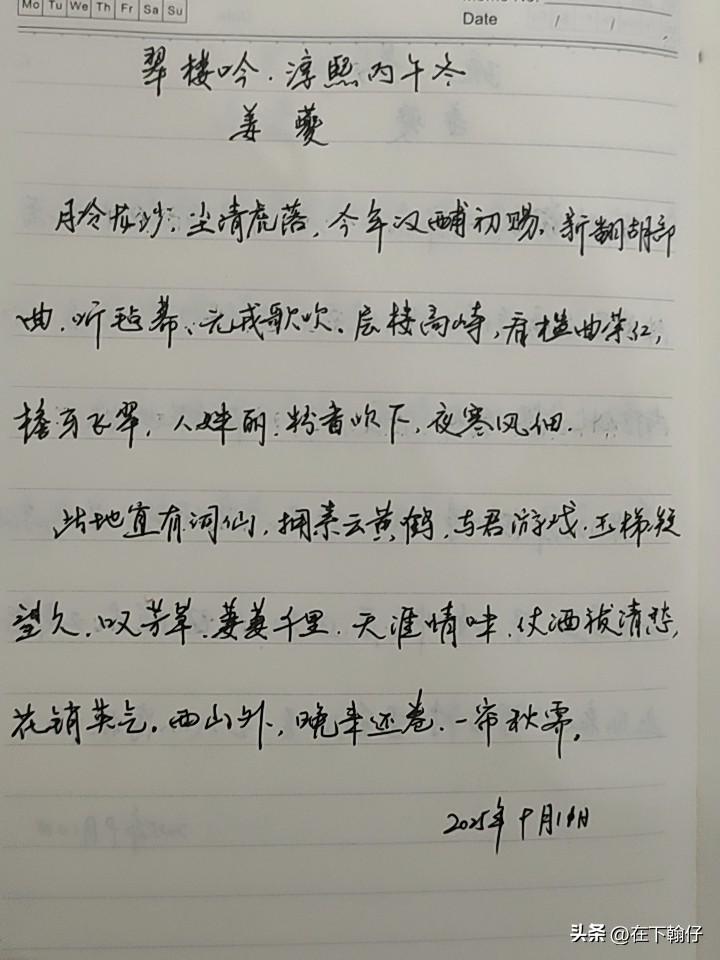 Mo Tu We Th Fr Sa Su
Memo No.
Date / / /
翠楼吟·淳熙丙午冬
姜夔
月冷龙沙,尘清虎落,今年汉酺初赐,新翻胡部
曲,听毡幕、元戎歌吹。层楼高峙,看槛曲萦红,
檐牙飞翠,人姝丽,粉香吹下,夜寒风细.
此地宜有词仙,拥素云黄鹤,与君游戏.玉梯凝
望久,叹芳草,萋萋千里.天涯情味,仗酒祓清愁,
花销英气.西山外,晚来还卷.一帘秋霁。
2025年9月 日
头条 @在下翰仔